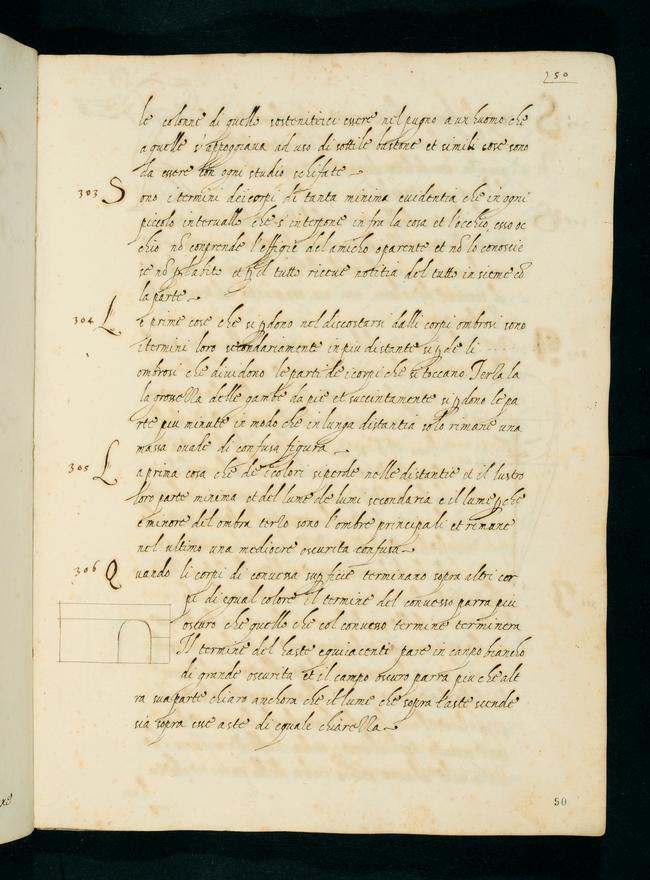 250
le colonne di quelle sostenitrici essere nel pugno a un huomo che
a quelle s'appoggiava ad uso di sottile bastone et simili cose sono
da essere con ogni studio schifate
303 Sono i termini dei corpi di tanta minima evidentia che in ogni
piccolo intervallo che s'interpone in fra la cosa et l'occhio esso oc
chio nõ conprende l'effigie del amicho o parente et nõ lo conosce
se nõ p l'abito et p il tutto riceve notitia del tutto insieme cõ
la parte
304 Le prime cose che si pdono nel discostarsi dalli corpi ombrosi sono
i termini loro secondariamente in piu distante si pde li
ombrosi che dividono le parti de i corpi che si toccano Terza la
la grossezza delle gambe da pie et succintamente si pdono le pa
rte piu minute in modo che in lunga distantia solo rimane una
massa ovale di confusa figura
305 La prima cosa che de i colori si perde nelle distantie et il lustro
loro parte minima et del lume de lumi secondaria e il lume p che
e minore del ombra terzo sono l'ombre principali et rimane
nel ultimo una mediocre oscurita confusa
306 Quando li corpi di convessa supficie terminano sopra altri cor
pi di equal colore il termine del convesso parra piu
oscuro che quello che col convesso termine terminera
Il termine del haste equiiacenti pare in canpo biancho
di grande oscurita et il campo oscuro parra piu che alt
ra sua parte chiaro anchora che il lume che sopra l'aste scende
sia sopra esse aste di equale chiarezza
50